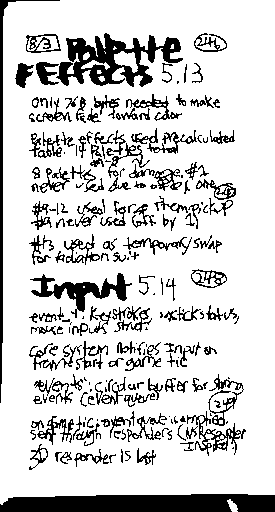 8/3 Palette 246
Effects 5.13
Only 768 bytes needed to make
screen fade toward color
Palette effects used precalculated
table. 14 Palettes total
#1-8
8 Palettes for damage, #1
never used due to one 247
#9-12 used for pickup
#9 never used (off by 1)
#13 used as temporary/swap
for radiation suit
Input 5.14 248
event_t: keystrokes, stick status,
mouse inputs struct.
Core system notifies Input on
frame start or game tic
"events": circular buffer for storing
events (event queue) 249
on game tic, event queue is emptied
sent through responders (NSResponder
Inspired)
3D responder is last